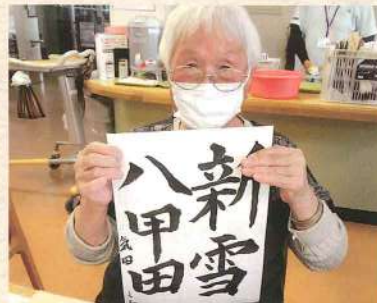 新雪
八甲田